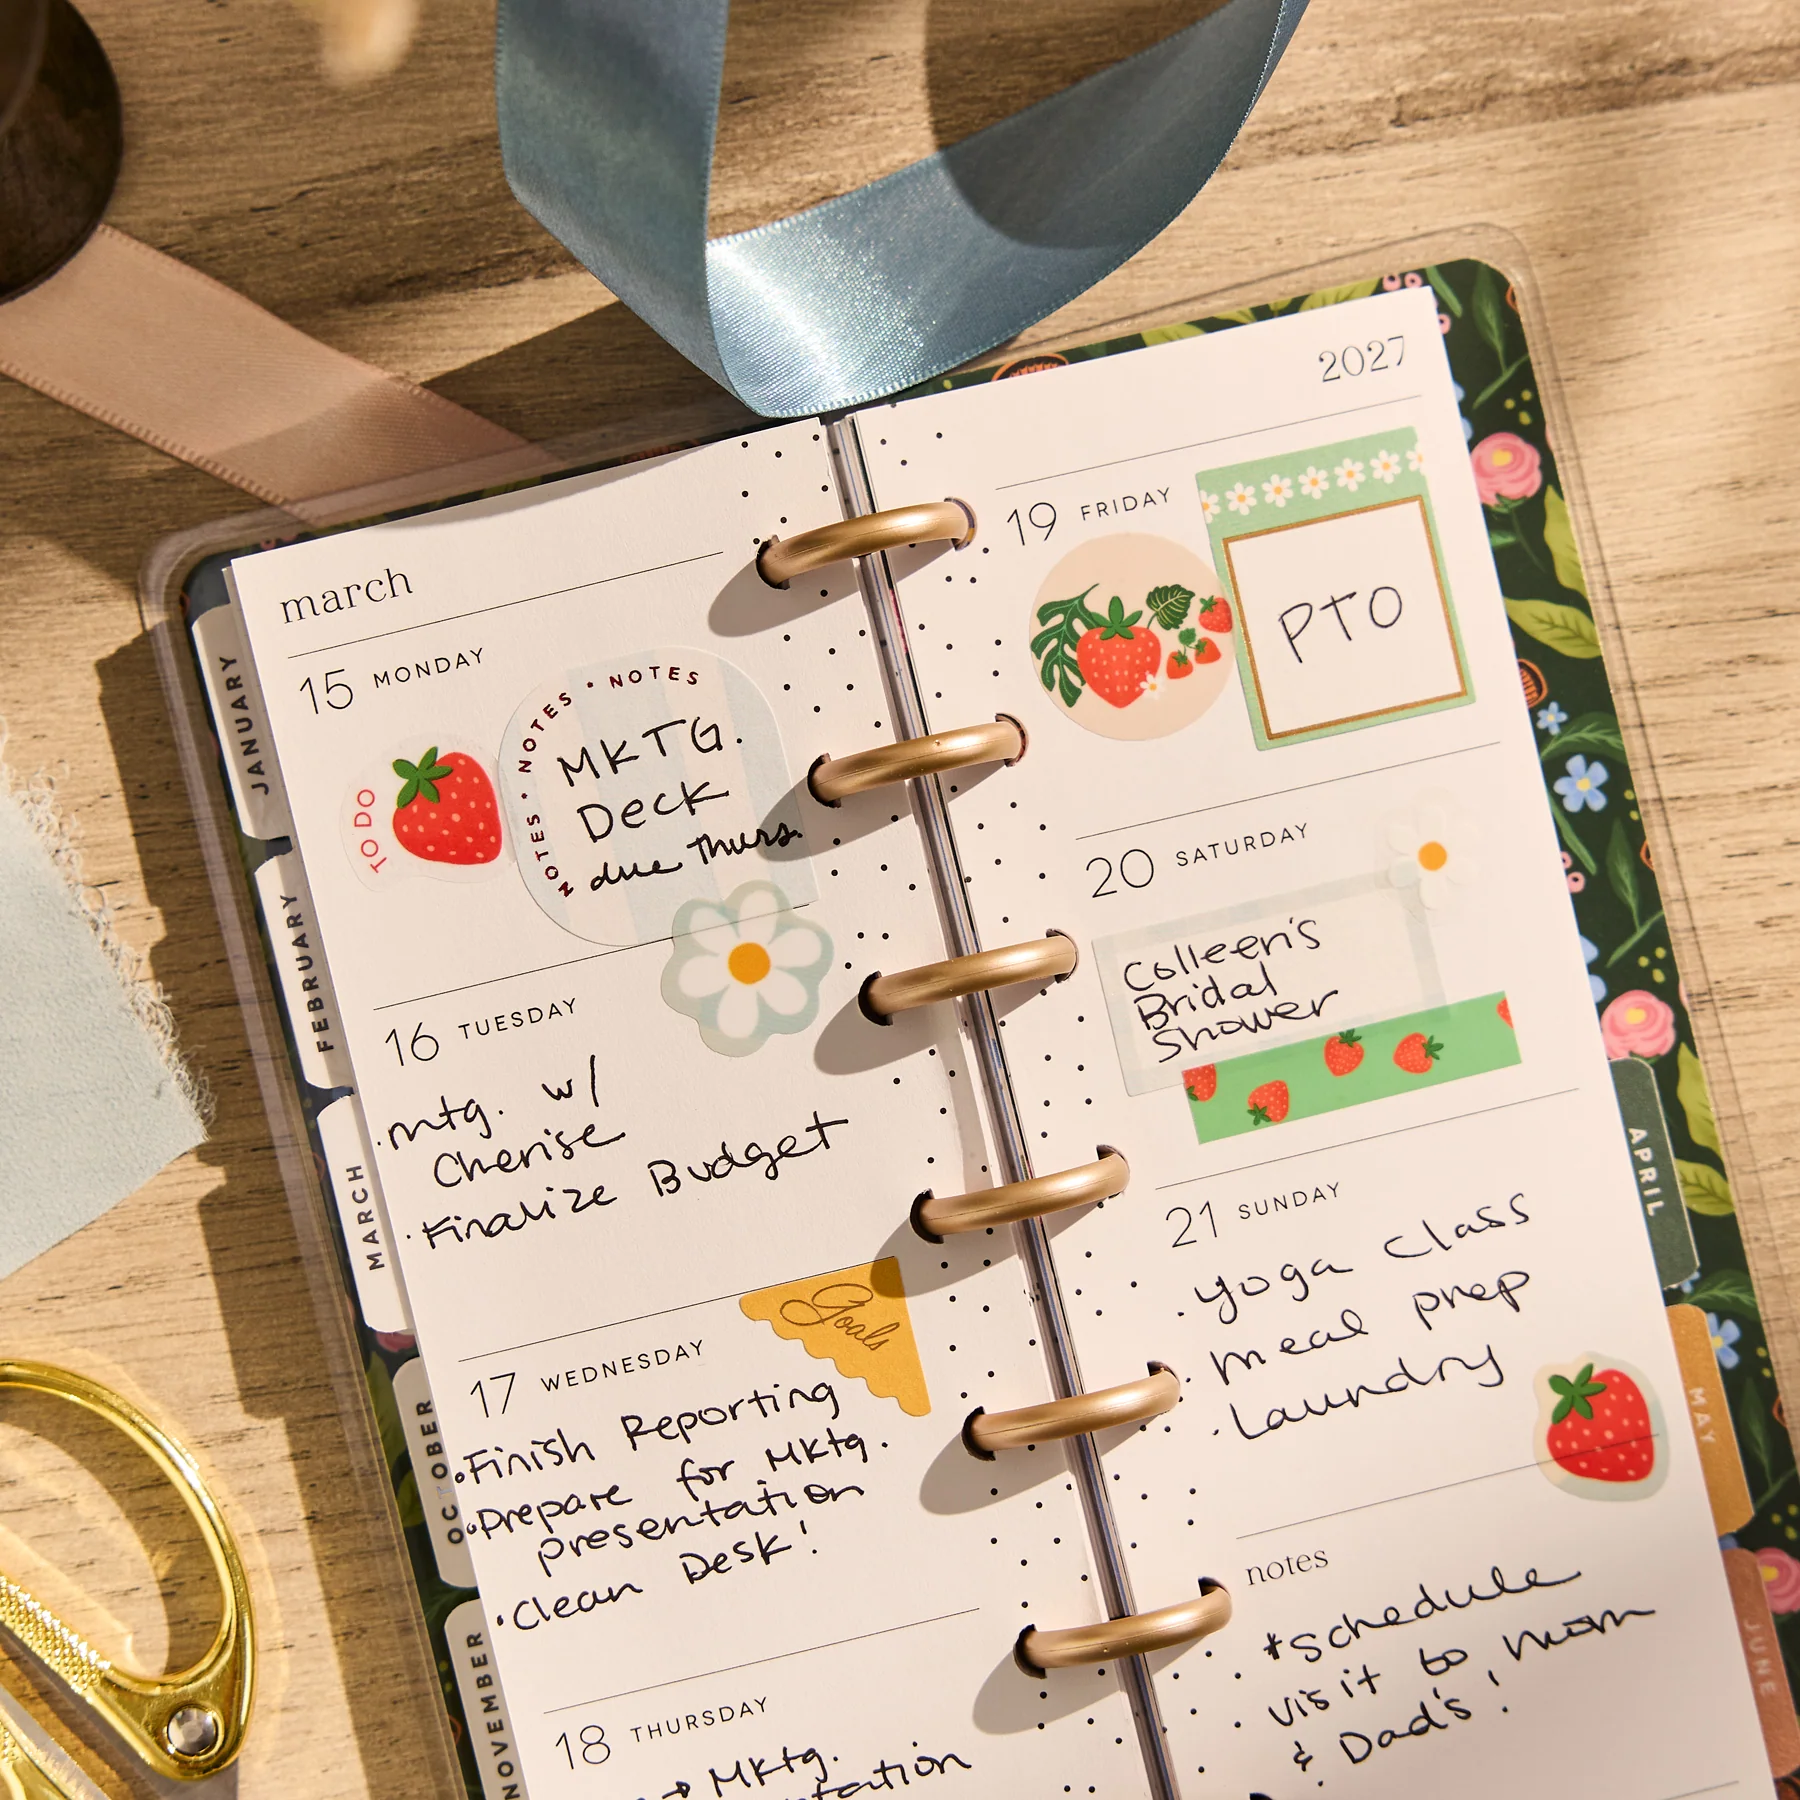 march
15 MONDAY
TO DO
NOTES • NOTES • NOTES
MKTG.
Deck
due Thurs.
16 TUESDAY
• mtg. w/
Cherise
• Finalize Budget
Goals
17 WEDNESDAY
• Finish Reporting
• Prepare for Mktg.
presentation
• Clean Desk!
18 THURSDAY
→ Mktg.
2027
19 FRIDAY
PTO
20 SATURDAY
Colleen's
Bridal
Shower
21 SUNDAY
• yoga class
• meal prep
• Laundry
notes
*Schedule
visit to mom
& Dad's!
JANUARY
FEBRUARY
MARCH
OCTOBER
NOVEMBER
APRIL
MAY
JUNE